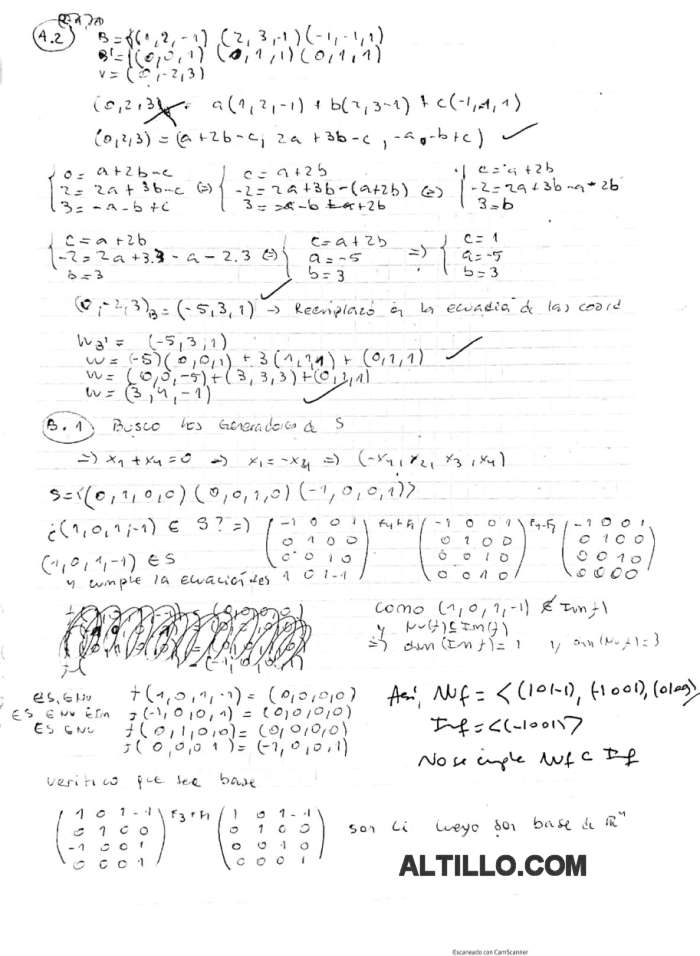 A.2 B = {(1,2,-1) (2,3,-1)(-1,-1,1)
B' = {(0,0,1) (1,1,1) (0,1,1)
v = (0,-2,3)
(0,2,3) = a(1,2,-1) + b(2,3-1) + c(-1,-1,1)
(0,2,3) = (a+2b-c, 2a+3b-c, -a-b+c)
0 = a+2b-c
2 = 2a+3b-c
3 = -a-b+c
c = a+2b
-2 = 2a+3b-(a+2b)
3 = -a-b+a+2b
c = a+2b
-2 = 2a+3b-a-2b
3 = b
c = a+2b
-2 = 2a+3.3-a-2.3
b = 3
c = a+2b
a = -5
b = 3
c = 1
a = -5
b = 3
(0,-2,3)B = (-5,3,1) → Reemplazo en la ecuación de las coord
wB' = (-5,3,1)
w = (-5)(0,0,1) + 3(1,1,1) + (0,1,1)
w = (0,0,-5)+(3,3,3)+(0,1,1)
w = (3,4,-1)
B.1 Busco los Generadores de S
⇒ x1 + x4 = 0 ⇒ x1 = -x4 ⇒ (-x4, x2, x3, x4)
S = <(0,1,0,0) (0,0,1,0) (-1,0,0,1)>
¿(1,0,1,-1) ∈ S? ⇒ (-1 0 0 1 F4+F1 (-1 0 0 1 F4-F3 (-1 0 0 1
0 1 0 0 0 1 0 0 0 1 0 0
(1,0,1,-1) ∈ S 0 0 1 0 0 0 1 0 0 0 1 0
y cumple la ecuación 1 0 1 -1) 0 0 1 0) 0 0 0 0)
como (1,0,1,-1) ∉ Im f)
y Nu(f) ⊆ Im(f)
⇒ dim(Im f) = 1 y dim(Nu f) = 3
ES GNU f(1,0,1,-1) = (0,0,0,0)
ES GNU f(-1,0,0,1) = (0,0,0,0)
ES GNU f(0,1,0,0) = (0,0,0,0)
f(0,0,0 1) = (-1,0,0,1)
Así, Nuf = <(101-1), (-1001), (0100)>
Imf = <(-1001)>
No se cumple Nuf ⊂ If
verifico que sea base
(1 0 1 -1 F3+F1 (1 0 1 -1
0 1 0 0 0 1 0 0
-1 0 0 1 0 0 1 0
0 0 0 1) 0 0 0 1) son Li luego son base de ℝ⁴
ALTILLO.COM
Escaneado con CamScanner